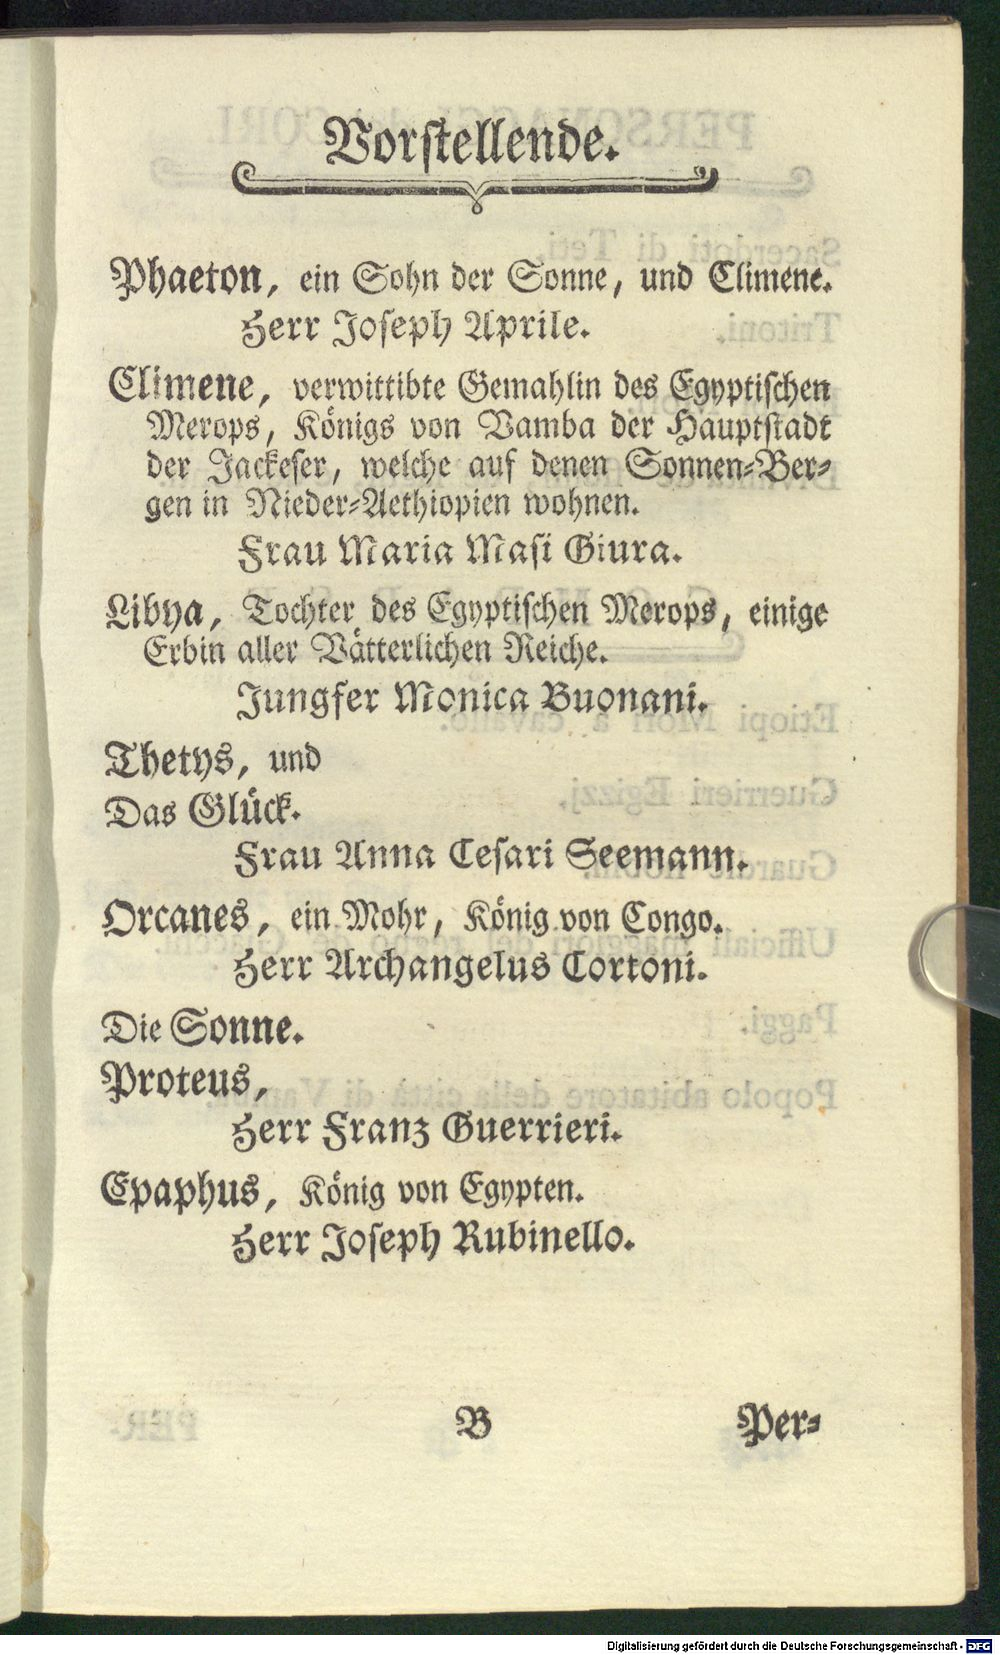 Vorstellende.
Phaeton, ein Sohn der Sonne, und Climene.
Herr Joseph Aprile.
Climene, verwittibte Gemahlin des Egyptischen
Merops, Königs von Vamba der Hauptstadt
der Jackeser, welche auf denen Sonnen-Ber-
gen in Nieder-Aethiopien wohnen.
Frau Maria Masi Giura.
Libya, Tochter des Egyptischen Merops, einige
Erbin aller Vätterlichen Reiche.
Jungfer Monica Buonani.
Thetys, und
Das Glück.
Frau Anna Cesari Seemann.
Orcanes, ein Mohr, König von Congo.
Herr Archangelus Cortoni.
Die Sonne.
Proteus,
Herr Franz Guerrieri.
Epaphus, König von Egypten.
Herr Joseph Rubinello.
B Per-
Digitalisierung gefördert durch die Deutsche Forschungsgemeinschaft - DFG